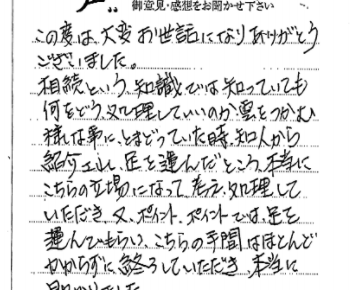 声‥ 御意見・感想をお聞かせ下さい
この度は、大変お世話になりありがとう
ございました。
相続という、知識では知っていても
何をどう、処理していいのか、雲をつかむ
様な事に、とまどっていた時、知人から
紹介エルし、足を運んだところ、本当に
こちらの立場になって、考え、処理して
いただき、又、ポイント、ポイントでは、足を
運んでもらい、こちらの手間はほとんど
かからずに、終了していただき、本当に
助かりました。